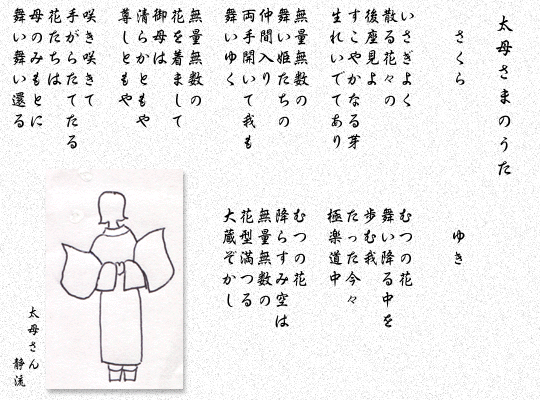 太母さまのうた
さくら
いさぎよく
散る花々の
後座見よ
すこやかなる芽
生れいでてあり
無量無数の
舞い姫たちの
仲間入り
両手開いて我も
舞いゆく
無量無数の
花を着まして
御母は
清らかともや
尊しともや
咲き咲きて
手がらたてたる
花たちは
母のみもとに
舞い舞い還る
ゆき
むつの花
舞い降る中を
歩む我
たった今々
極楽道中
むつの花
降らすみ空は
無量無数の
花型満つる
大蔵ぞかし
太母さん
静流